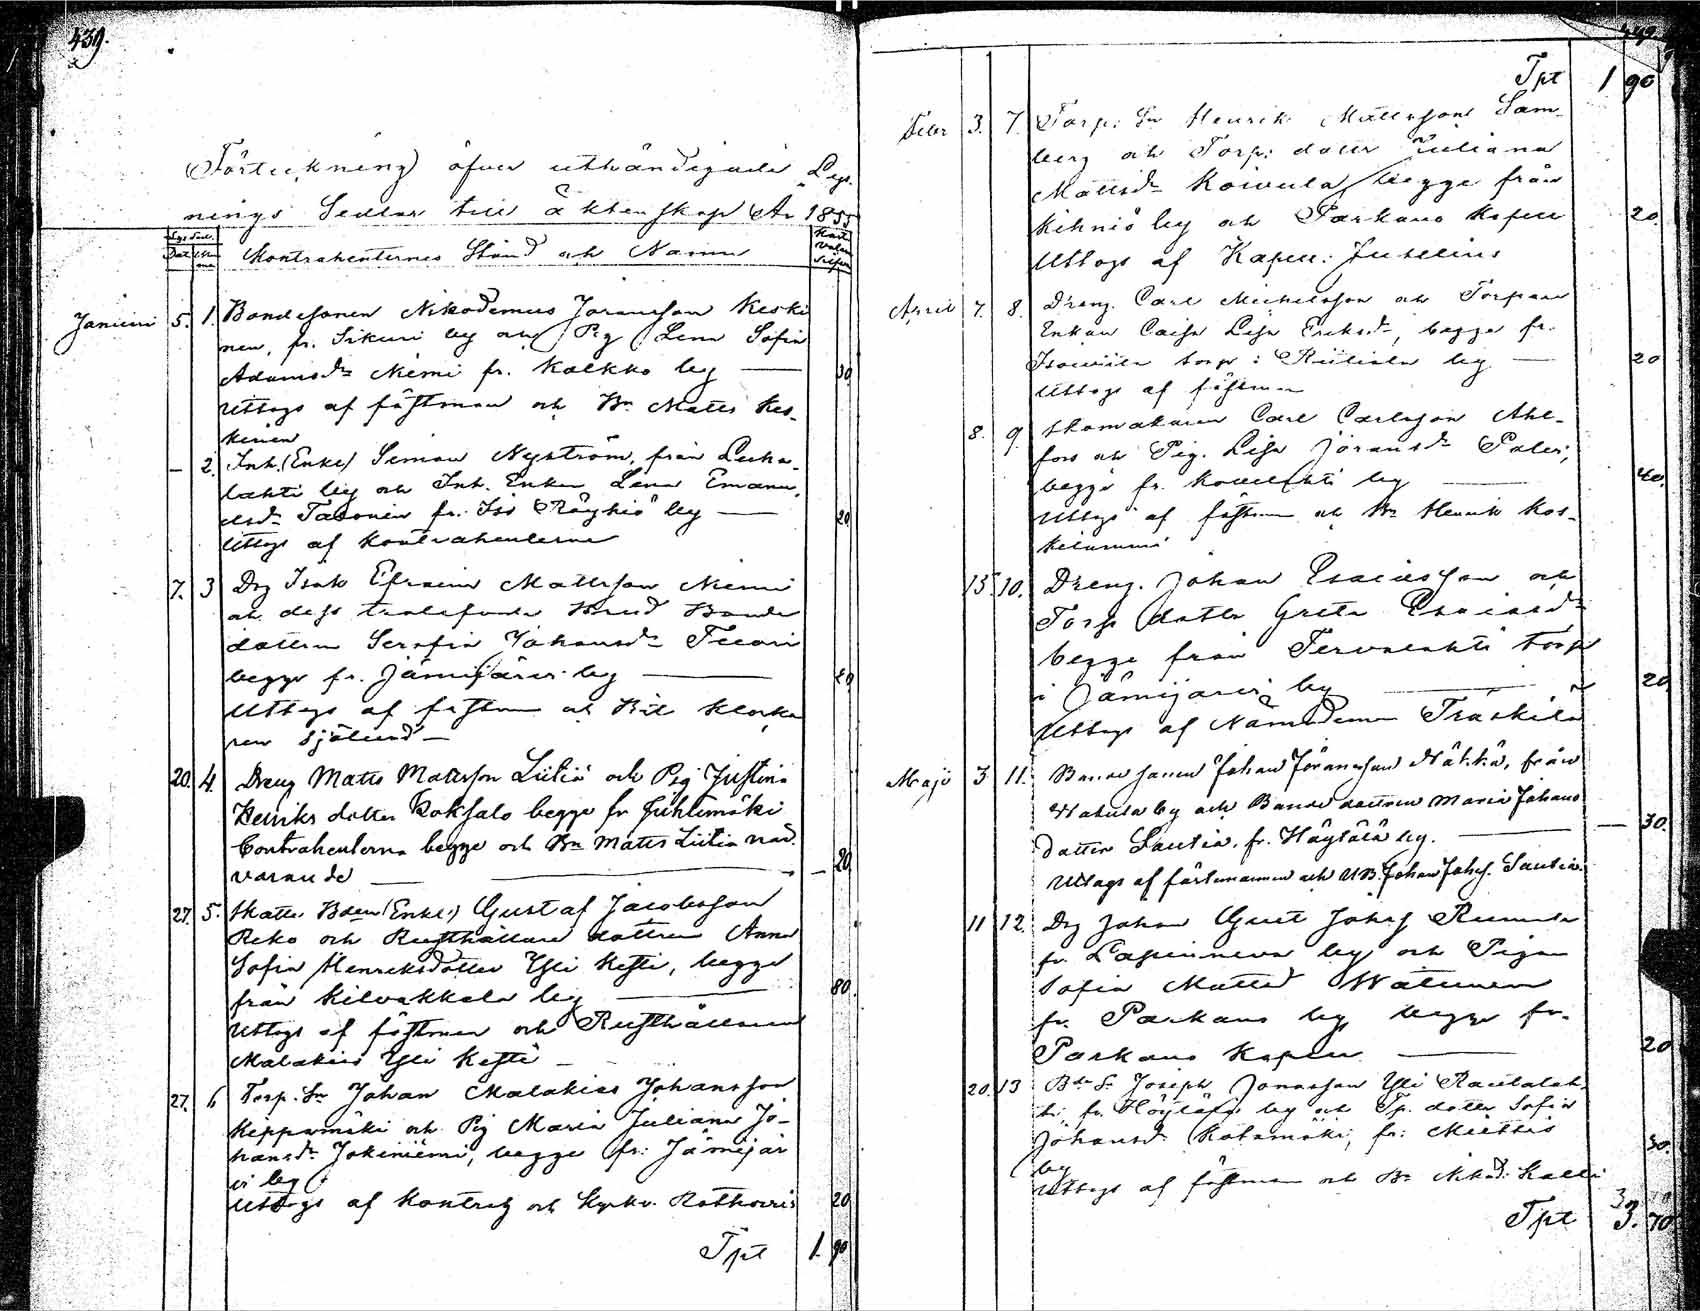 439.
Förteckning öfver uthändigade Lys-
nings Sedlar till äktenskap År 1855
Dat
Kontrahenternes Stånd och Namn
Januari 5. 1. Bondesonen Nikodemus Joransson Keski
nen, fr. Sikuri by och Pig. Lena Sofia
Adamsdr Niemi fr. Kalkko by — 30
Uttogs af fästman och Bn Matts Kes-
kinen
— 2. Inh. (Enkl) Simon Nyström, från Leuha-
lahti by och Inh. Enkan Lena Emanu-
elsdr Tasonen fr. Iso Röyhiö by — 20
Uttogs af Kontrahenterne
7. 3 Drg Isak Efraim Mattsson Niemi
och dess trolofvade Brud Bonde
dottren Serafia Johansdr Tuori
begge fr. Jämijärvi by — 20
Uttogs af fästman och Bit. Klocka
ren Sjölund —
20. 4. Dreng Matts Mattsson Liitiä och Pig Justina
Henriks dotter Koksalo begge fr Juhtimäki
Contrahenterna begge och Bn Matts Liitiä när-
varande — 20
27. 5. Skatte Bden (Enkl.) Gustaf Jacobsson
Reko och Rusthållare dottren Anna
Sofia Henriksdotter Yli Kesti, begge
från Kilvakkala by — 80
Uttogs af fästman och Rusthållaren
Malakias Yli Kesti —
27. 6 Torp. Sn Johan Malakias Johansson
Keppomäki och Pig Maria Juliana Jo-
hansdr Jokiniemi, begge fr. Jämijär
vi by
Uttogs af Kontrah och Kyrkv. Rothovius 20
Tpt 1. 90
Tpt 1 90
Febr 3. 7. Torp. Sn Henrik Mattsson Sam-
berg och Torp: dotter Juliana
Mattsdr Koivula begge från
Kihniö by och Parkano Kapell 20.
Uttogs af Kapell: Juselius
April 7. 8. Dreng. Carl Michelsson och Torpare
Enkan Caisa Lisa Eriksdr, begge fr.
torp i by — 20
Uttogs af fästman
8. 9. Skomakaren Carl Carlsson Ahl-
fors och Pig. Lisa Joransdr Paleri,
begge fr. Kovelahti by — 40.
Uttogs af fästman och Bn Henrik Kos-
kilammi
15. 10. Dreng. Johan Esaiasson och
Torp dotter Greta Esaiasdr
begge från Tervalahti torp
i Jämijärvi by — 20
Uttogs af Nämndeman Träskilä
Maji 3 11. Bonde sonen Johan Joransson Näkkä, från
by och Bonde dottren Maria Johans
dotter Sautia, fr. Höytölä by. — 30.
Uttogs af fästmannen och UB. Johan Johss. Sautia.
11 12. Drg Johan Gust Johss
fr. Lapinneva by och Pigan
Sofia Mattsd Wätinen
fr. Parkano by, begge fr.
Parkano Kapell — 20
20. 13 Bde Sn Joseph Jonasson Yli Rautalah-
ti fr. Höytölä by och Tp. dotter Sofia
Johansd. Rotomäki, fr. Miettis
by 30.
Uttogs af fästman och Bn Nikod: Kalli
Tpt 3. 70